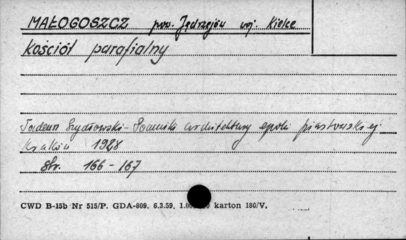 MAŁOGOSZCZ pow. Jędrzejów woj. Kielce
kościół parafialny
Tadeusz Szydłowski - Pomniki architektury epoki piastowskiej
Kraków 1928
Str. 166 - 167
CWD B-15b Nr 515/P. GDA-809. 6.3.59, karton 186/V.